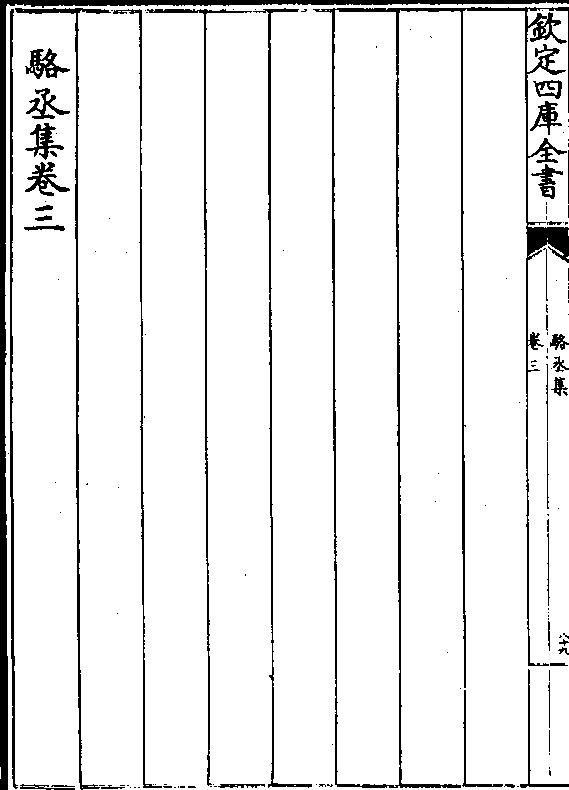 欽定四庫全書
駱丞集
卷三
六十九
駱丞集卷三